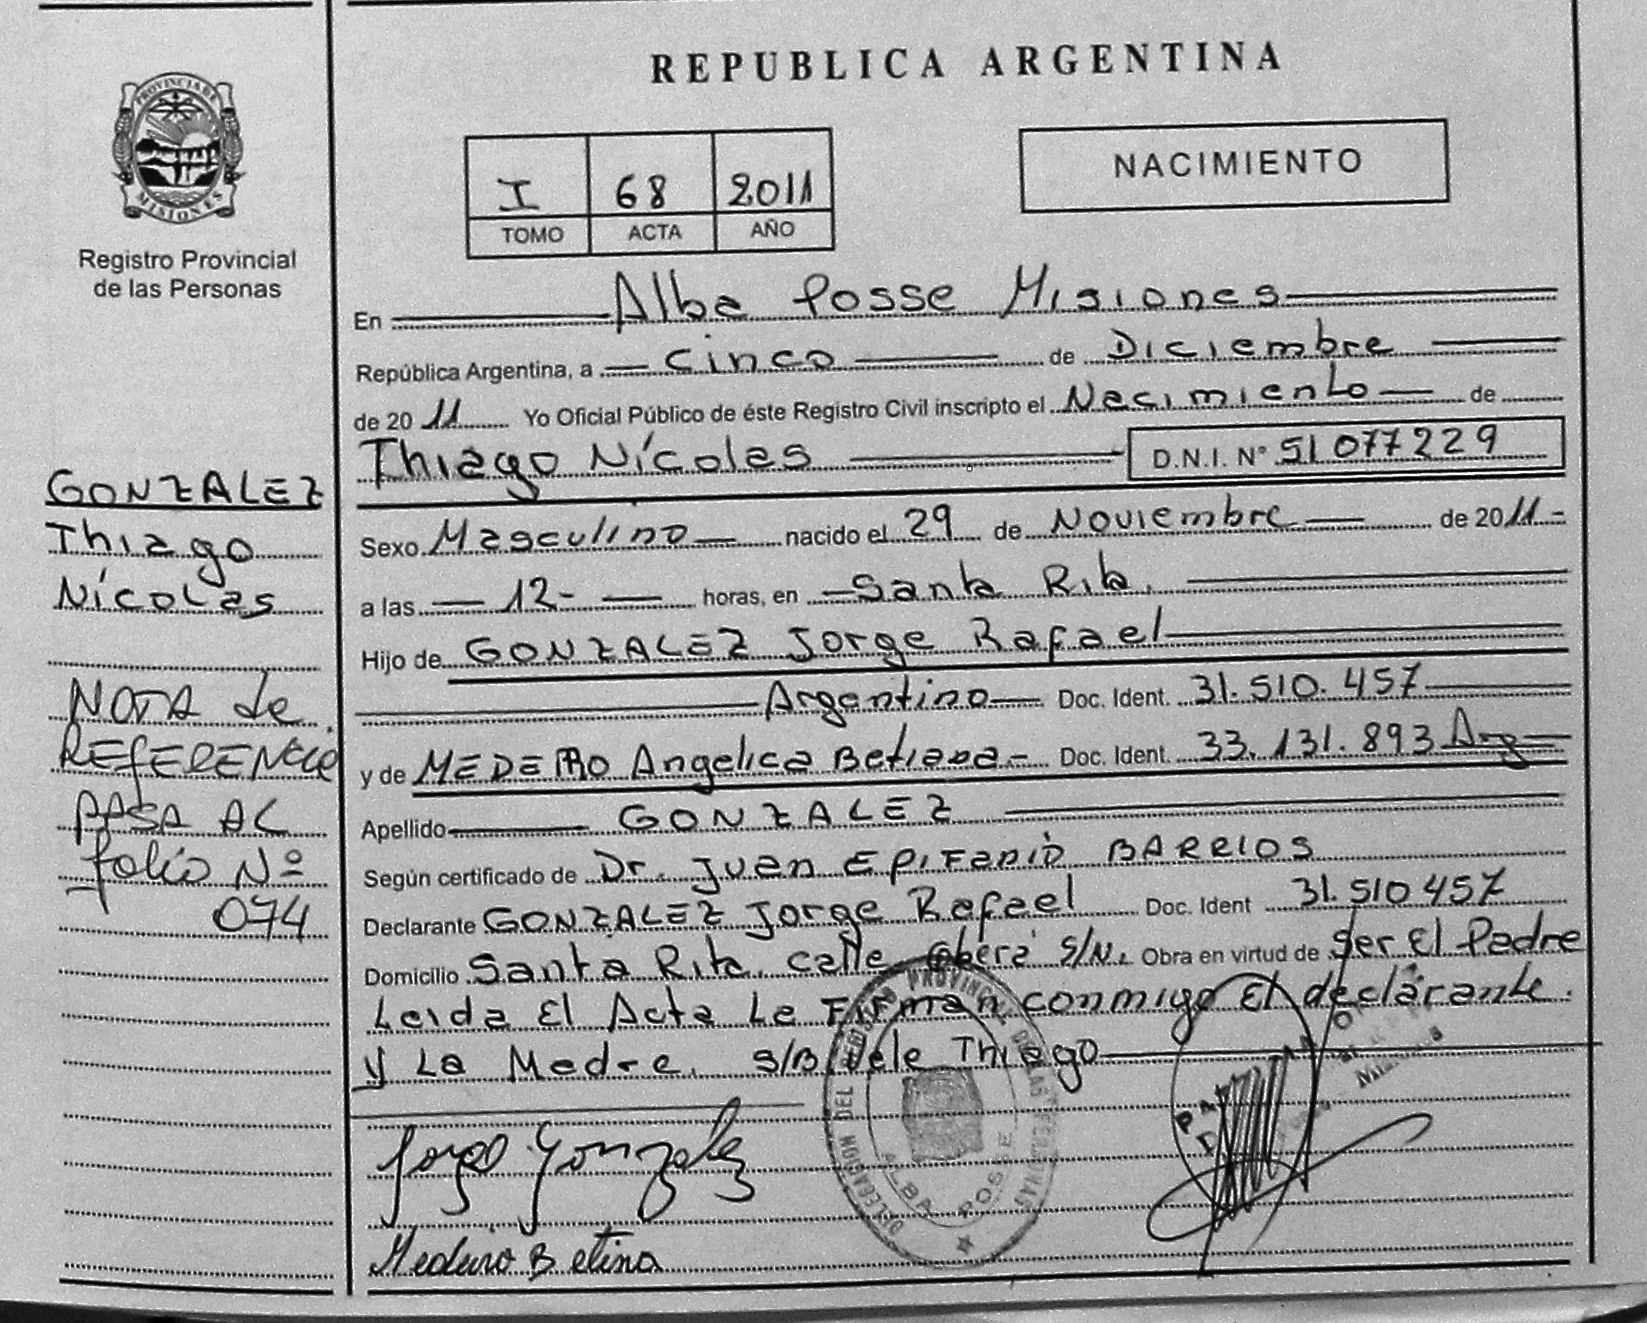 REPUBLICA ARGENTINA
PROVINCIA DE
MISIONES
Registro Provincial
de las Personas
I 68 2011
TOMO ACTA AÑO
NACIMIENTO
En Alba Posse Misiones
República Argentina, a Cinco de Diciembre
de 2011 Yo Oficial Público de éste Registro Civil inscripto el Nacimiento de
Thiago Nícolas D.N.I. Nº 51077229
Sexo Masculino nacido el 29 de Noviembre de 2011-
a las 12- horas, en Santa Rita.
Hijo de GONZALEZ Jorge Rafael
Argentino Doc. Ident. 31.510.457
y de MEDEIRO Angelica Betiana- Doc. Ident. 33.131.893 Arg
Apellido GONZALEZ
Según certificado de Dr. Juan EPIFANIO BARRIOS
Declarante GONZALEZ Jorge Rafael Doc. Ident 31.510457
Domicilio Santa Rita calle Oberá S/N. Obra en virtud de ser El Padre
Leida El Acta La Firman conmigo El declarante.
y La Madre. S/B Vale Thiago
Jorge Gonzalez
Medeiro Betina
GONZALEZ
Thiago
Nícolas
NOTA de
REFERENCIA
PASA AL
folio Nº
074
DELEGACION DEL REGISTRO PROVINCIAL DE LAS PERSONAS
ALBA POSSE